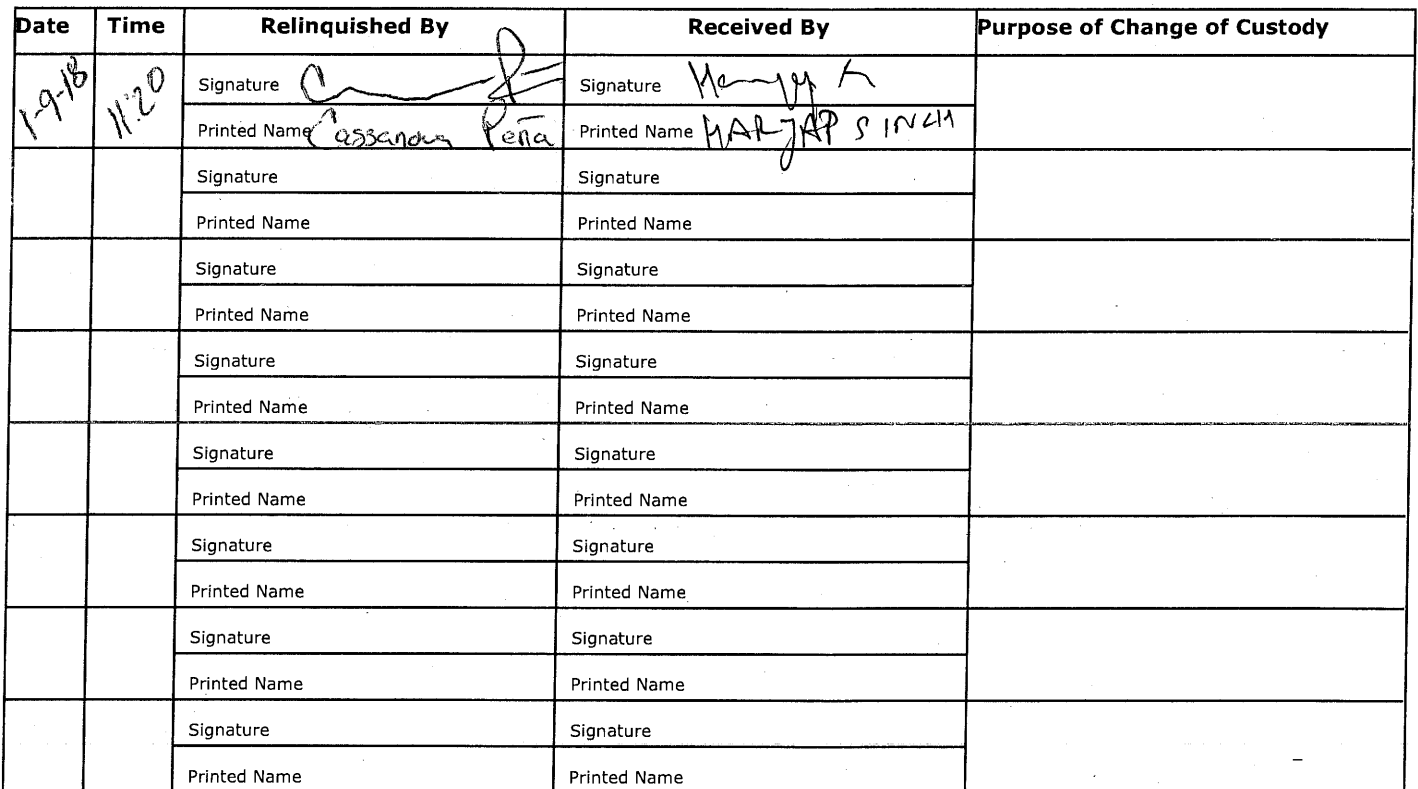 Date Time Relinquished By Received By Purpose of Change of Custody
1-9-18 11:20 Signature Signature
Printed Name Cassanova Peña Printed Name HARJAP SINGH
Signature Signature
Printed Name Printed Name
Signature Signature
Printed Name Printed Name
Signature Signature
Printed Name Printed Name
Signature Signature
Printed Name Printed Name
Signature Signature
Printed Name Printed Name
Signature Signature
Printed Name Printed Name
Signature Signature
Printed Name Printed Name